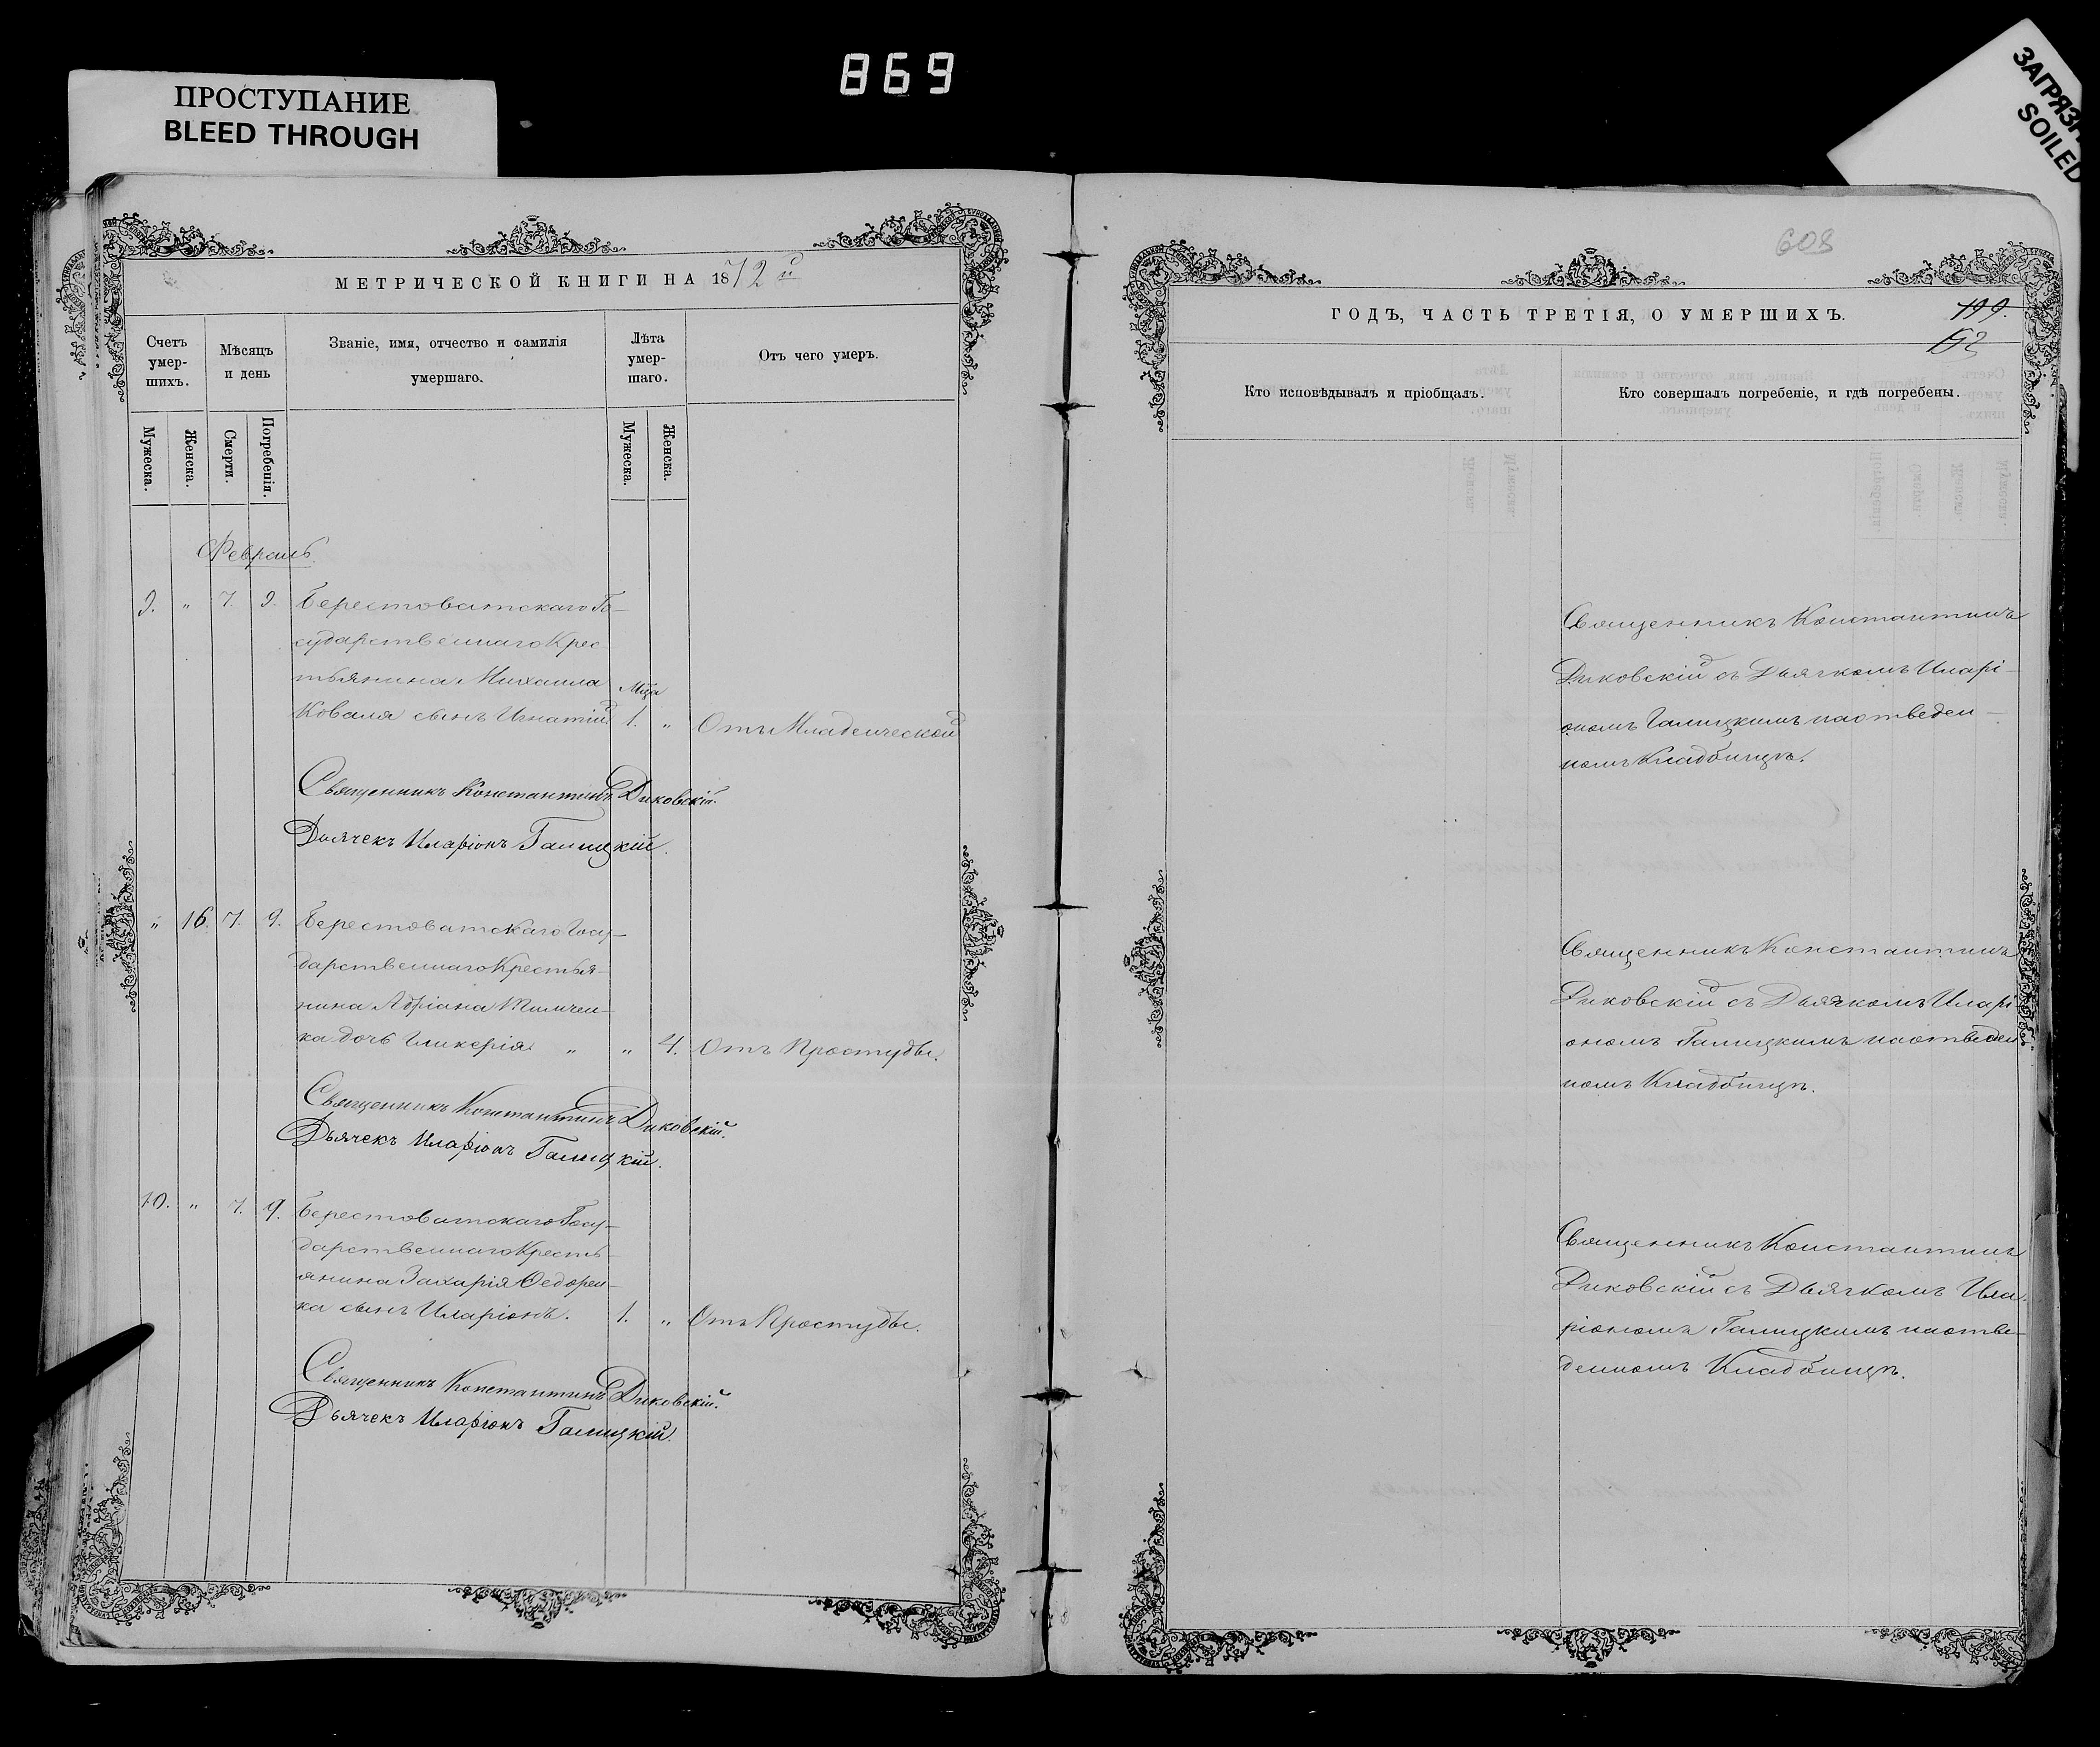 869
ПРОСТУПАНИЕ
BLEED THROUGH
SOILED
МЕТРИЧЕСКОЙ КНИГИ НА 1872й
Счетъ умер-шихъ.
Мѣсяцъ и день
Званіе, имя, отчество и фамилія
умершаго.
Лѣта умер-шаго.
Отъ чего умеръ.
Мужеска.
Женска.
Смерти.
Погребенія.
Мужеска.
Женска.
Февраль.
9. " 7. 9. Берестоватскаго Го-
сударственнаго Крес-
тьянина Михаила Мца
Коваля сынъ Игнатій 1. " Отъ Младенческой
Священникъ Константинъ Диковскій.
Дьячекъ Иларіонъ Галицкій.
" 16. 7. 9. Берестоватскаго Госу-
дарственнаго Крестья-
нина Адріана
ка дочь Гликерія " " 4. Отъ Простуды.
Священникъ Константинъ Диковскій.
Дьячекъ Иларіонъ Галицкій.
10. " 7. 9. Берестоватскаго Госу-
дарственнаго Кресть-
янина Захарія Ѳедорен-
ка сынъ Иларіонъ. 1. " Отъ Простуды.
Священникъ Константинъ Диковскій.
Дьячекъ Иларіонъ Галицкій.
608
ГОДЪ, ЧАСТЬ ТРЕТІЯ, О УМЕРШИХЪ.
199.
Кто исповѣдывалъ и пріобщалъ.
Кто совершалъ погребеніе, и гдѣ погребены.
Священникъ Константинъ
Диковскій съ Дьячкомъ Иларі-
ономъ Галицкимъ на отведен-
номъ Кладбищѣ.
Священникъ Константинъ
Диковскій съ Дьячкомъ Иларі
ономъ Галицкимъ на отведен
номъ Кладбищѣ.
Священникъ Константинъ
Диковскій съ Дьячкомъ Ила-
ріономъ Галицкимъ на отве-
денномъ Кладбищѣ.